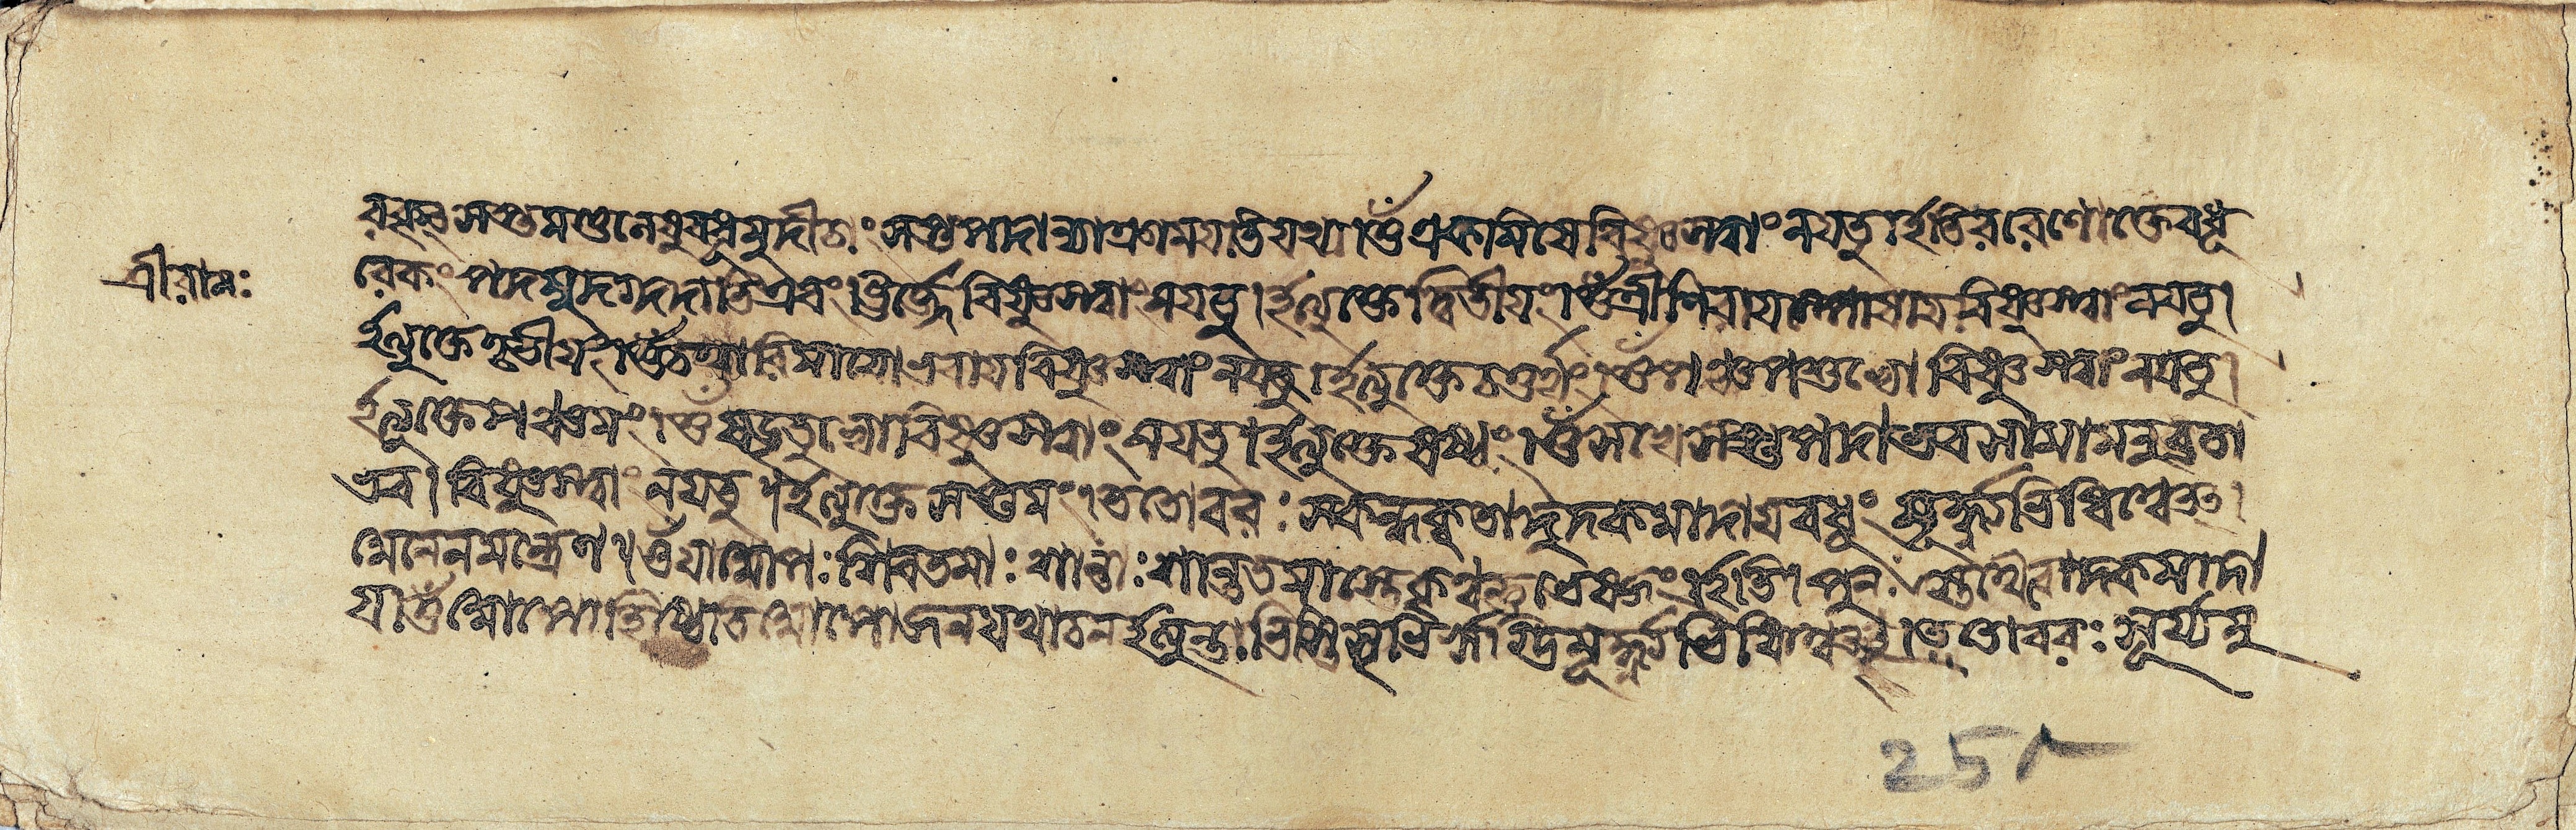 শ্রীরামঃ
বরস্তু সপ্তমণ্ডলেষু বধূমুদীচীং সপ্তপদান্যাক্রময়তি যথা। ওঁ একমিষে বিষ্ণুস্ত্বাং নয়তু। ইতি বরেণোক্তে বধূ
রেকং পদমুদগ্দদাতি এবং। দ্বে ঊর্জ্জে বিষ্ণুস্ত্বাং নয়তু। ইত্যুক্তে দ্বিতীয়ং। ওঁ ত্রীণি রায়স্পোষায় বিষ্ণুস্ত্বাং নয়তু।
ইত্যুক্তে তৃতীয়ং। ওঁ চত্বারি মায়োভবায় বিষ্ণুস্ত্বাং নয়তু। ইত্যুক্তে চতুর্থং। ওঁ পঞ্চ পশুভ্যো বিষ্ণুস্ত্বাং নয়তু।
ইত্যুক্তে পঞ্চমং। ওঁ ষড়ৃতুভ্যো বিষ্ণুস্ত্বাং নয়তু। ইত্যুক্তে ষষ্ঠং। ওঁ সখে সপ্তপদা ভব সা মামনুব্রতা
ভব। বিষ্ণুস্ত্বাং নয়তু। ইত্যুক্তে সপ্তমং। ততো বরঃ স্কন্ধকৃতাদুদকমাদায় বধূং মূর্দ্ধ্ন্যভিষিঞ্চেত।
অনেন মন্ত্রেণ। ওঁ আপঃ শিবতমাঃ শান্তাঃ শান্ততমাস্তে কৃণ্বন্তু ভেষজং। ইতি। পুনস্তথৈবোদকমাদা
য়। ওঁ আপোহিষ্ঠেতি আপোজনয়থাচন ইত্যন্তাভিস্তিসৃভির্ঋগ্ভির্মূর্দ্ধ্ন্যভিষিঞ্চতি। ততো বরঃ সূর্য্যমু
25